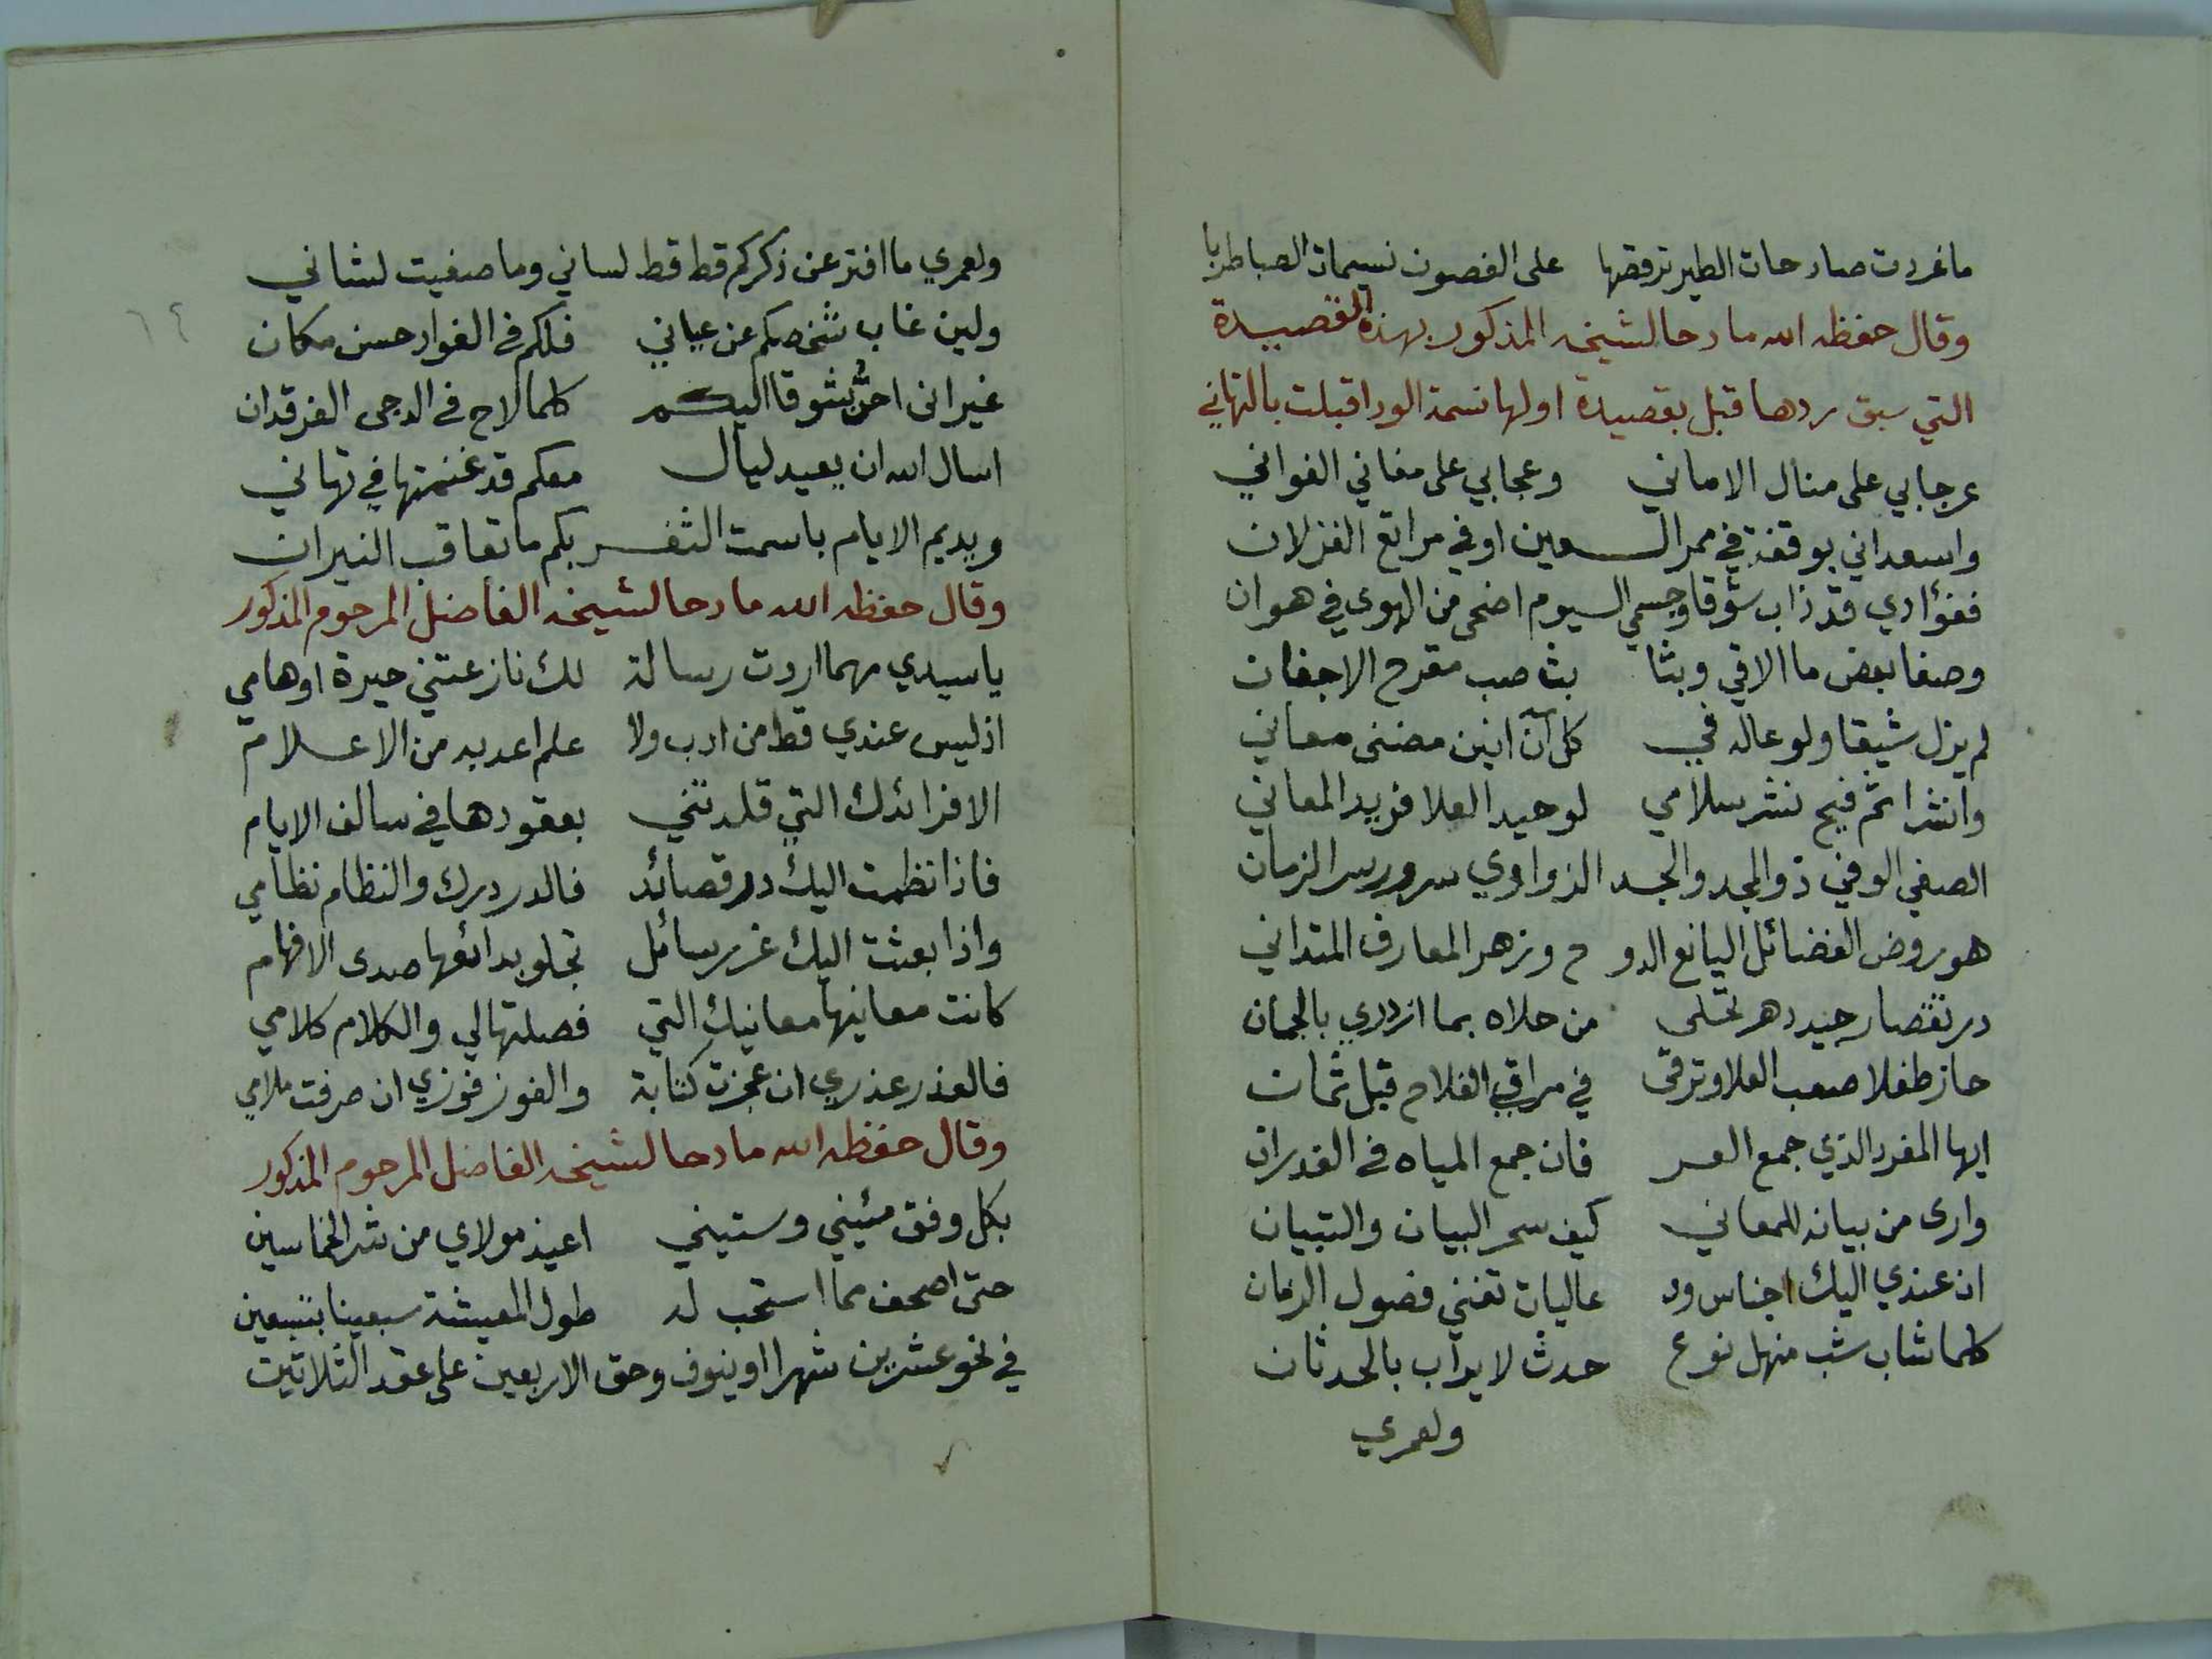 ما غردت صادحات الطير ترقصها على الغصون نسيمات الصبا طربا
وقال حفظه الله مادحا لشيخه المذكور بهذه القصيدة
التي سبق ردها قبل بقصيدة اولها نسمة الود اقبلت بالتهاني
عرجا بي على منال الاماني وعجا بي على مغاني الغواني
واسعداني بوقفة في ممر العين او في مراتع الغزلان
ففؤادي قد ذاب شوقا وجسمي اليوم اضحى من الهوى في هوان
وصفا بعض ما الاقي وبثا بث صب مقرح الاجفان
لم يزل شيقا ولوعا له في كل آن انين مضنى معاني
وانشرا ثم فيح نشر سلامي لوحيد العلا فريد المعاني
الصفي الوفي ذو المجد والجد الزواوي سرور سر الزمان
هو روض الفضائل اليانع الدو ح وزهر المعارف المتداني
در تقصار جيد دهر تحلى من حلاه بما ازدري بالجمان
حاز طفلا صعب العلا وترقى في مراقي الفلاح قبل ثمان
ايها المفرد الذي جمع العر فان جمع المياه في الغدران
وارى من بيانه للمعاني كيف سحر البيان والتبيان
ان عندي اليك اجناس ود عاليات تغني فضول الزمان
كلما شاب شب منهل نوع حدث لا يراب بالحدثان
ولعمري
٦٤
ولعمري ما افتر عن ذكركم قط قط لساني وما صغيت لشاني
ولين غاب شخصكم عن عياني فلكم في الفواد حسن مكان
غير انى احنّ شوقا اليكم كلما لاح في الدجى الفرقدان
اسال الله ان يعيد ليال معكم قد غنمتها في تهاني
ويديم الايام باسمت الثغر بكم ما تعاقب النيران
وقال حفظه الله مادحا لشيخه الفاضل المرحوم المذكور
يا سيدي مهما اردت رسالة لك نازعتني حيرة اوهامي
اذ ليس عندي قط من ادب ولا علم اعد به من الاعلام
الا فرائدك التي قلدتني بعقودها في سالف الايام
فاذا نظمت اليك در قصائد فالدر درك والنظام نظامي
واذا بعثت اليك غرر سائل تجلو بدائعها صدى الافهام
كانت معانيها معانيك التي فصلتها لي والكلام كلامي
فالعذر عذري ان عجزت كتابة والفوز فوزي ان صرفت ملامي
وقال حفظه الله مادحا لشيخه الفاضل المرحوم المذكور
بكل وفق مئيني وستيني اعيذ مولاي من شر الخماسين
حتى اصحف مما استحب له طول المعيشة سبعينا بتسعين
في نحو عشرين شهرا او ينوف وحق الاربعين على عقد الثلاثين